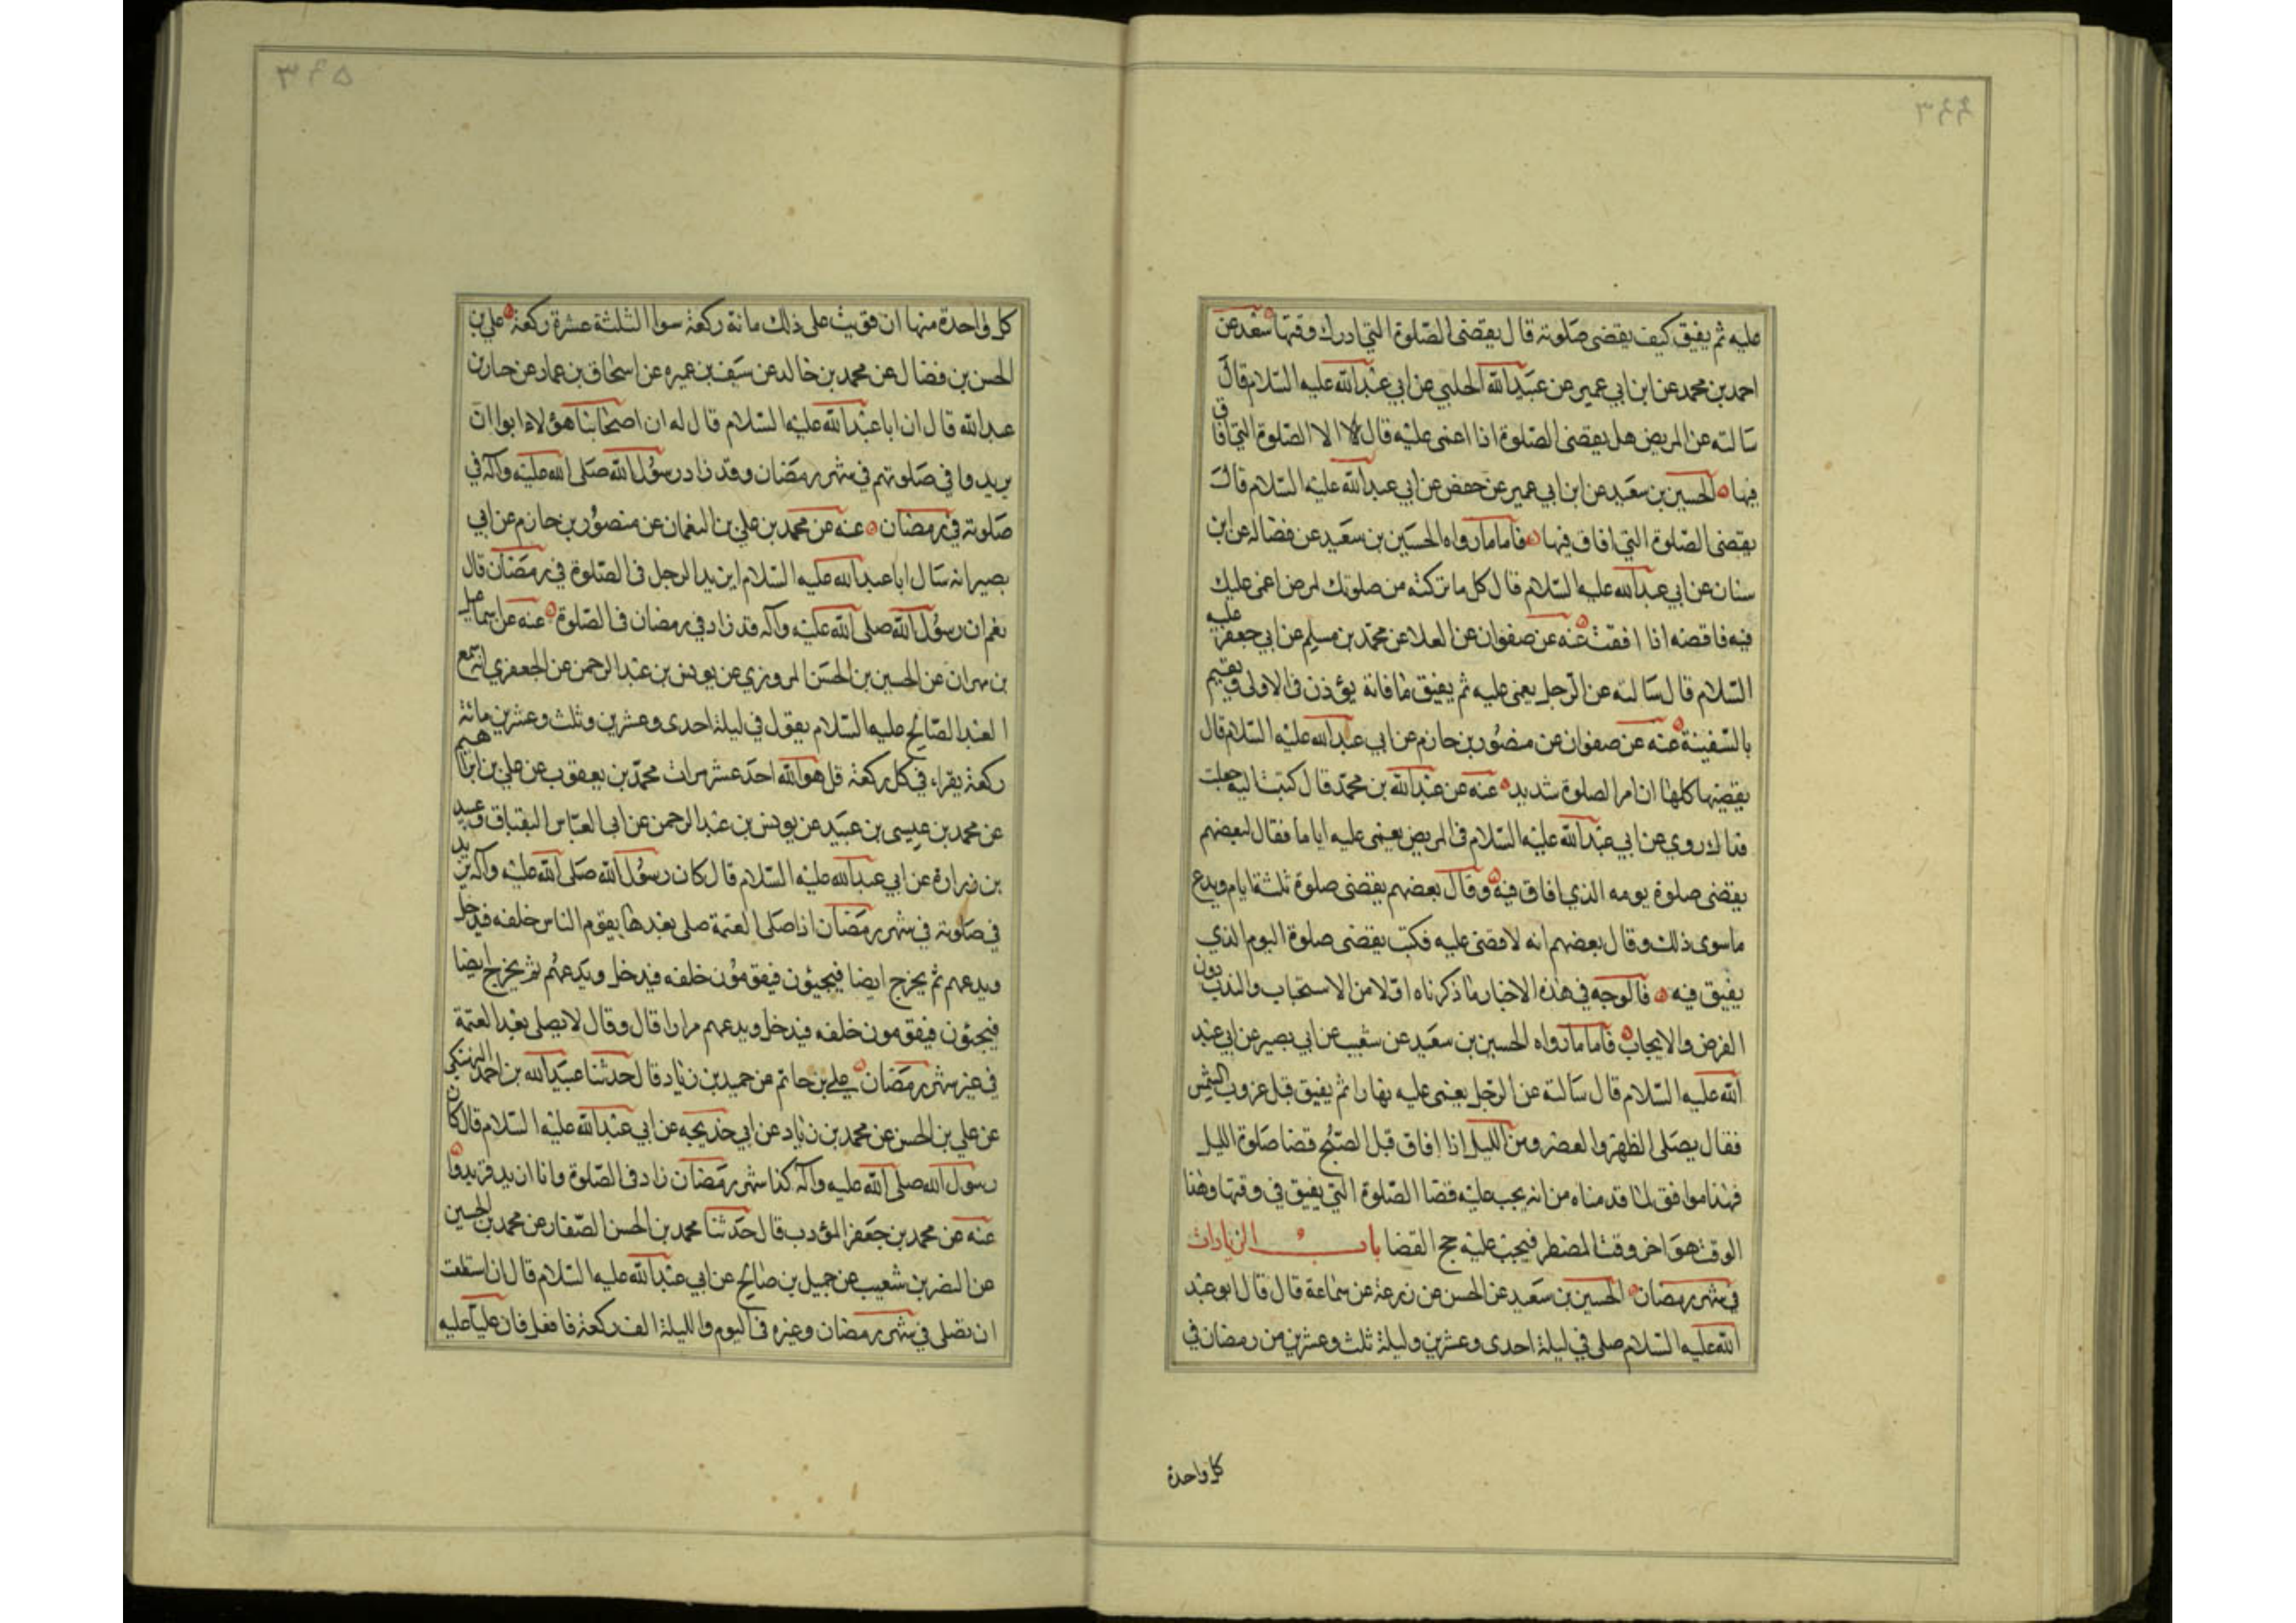 عليه ثم يفيق كيف يقضى صلوته قال يقضى الصلوة التي ادرك وقتها سعد عن
احمد بن محمد عن ابن ابي عمير عن عبيد الله الحلبي عن ابي عبد الله عليه السلام قال
سالته عن المريض هل يقضى الصلوة اذا اغمى عليه قال لا الا الصلوة التي افاق
فيها الحسين بن سعيد عن ابن ابي عمير عن حفص عن ابي عبد الله عليه السلام قال
يقضى الصلوة التي افاق فيها فاما ما رواه الحسين بن سعيد عن فضاله عن ابن
سنان عن ابي عبد الله عليه السلام قال كل ما تركته من صلوتك لمرض اغمى عليك
فيه فاقضه اذا افقت عنه عن صفوان عن العلا عن محمد بن مسلم عن ابي جعفر عليه
السلام قال سالته عن الرجل يغمى عليه ثم يفيق ما فاته يؤذن في الاولى ويقيم
بالسفينة عنه عن صفوان عن منصور بن حازم عن ابي عبد الله عليه السلام قال
يقضيها كلها ان امر الصلوة شديد عنه عن عبد الله بن محمد قال كتبت اليه جعلت
فداك روي عن ابي عبد الله عليه السلام في المريض يغمى عليه اياما فقال لبعضهم
يقضى صلوة يومه الذي افاق فيه وقال بعضهم يقضى صلوة ثلثة ايام ويدع
ما سوى ذلك وقال بعضهم انه لا قضى عليه فكتب يقضى صلوة اليوم الذي
يفيق فيه فالوجه في هذه الاخبار ما ذكرناه اولا من الاستحباب والندب دون
الفرض والايجاب فاما ما رواه الحسين بن سعيد عن شعيب عن ابي بصير عن ابي عبد
الله عليه السلام قال سالته عن الرجل يغمى عليه نهارا ثم يفيق قبل غروب الشمس
فقال يصلى الظهر والعصر ومن الليل اذا افاق قبل الصبح قضا صلوة الليل
فهذا موافق لما قدمناه من انه يجب عليه قضا الصلوة التي يفيق في وقتها وهذا
الوقت هو اخر وقت المضطر فيجب عليه ح القضا باب الزيادات
في شهر رمضان الحسين بن سعيد عن الحسن عن زرعة عن سماعة قال قال ابو عبد
الله عليه السلام صلى في ليلة احدى وعشرين وليلة ثلث وعشرين من رمضان في
كل واحدة
كل واحدة منها ان قويت على ذلك مائة ركعة سوا الثلثة عشرة ركعة علي بن
الحسن بن فضال عن محمد بن خالد عن سيف بن عميره عن اسحاق بن عمار عن جابر بن
عبد الله قال ان ابا عبد الله عليه السلام قال له ان اصحابنا هؤلاء ابوا ان
يزيدوا في صلوتهم في شهر رمضان وقد زاد رسول الله صلى الله عليه وآله في
صلوته في رمضان عنه عن محمد بن علي بن النعمان عن منصور بن حازم عن ابي
بصير انه سال ابا عبد الله عليه السلام ايزيد الرجل في الصلوة في رمضان قال
نعم ان رسول الله صلى الله عليه وآله قد زاد في رمضان في الصلوة عنه عن اسماعيل
بن مهران عن الحسين بن الحسن المروزي عن يونس بن عبد الرحمن عن الجعفري انه سمع
العبد الصالح عليه السلام يقول في ليلة احدى وعشرين وثلث وعشرين مائة
ركعة يقراء في كل ركعة قل هو الله احد عشر مرات محمد بن يعقوب عن علي بن ابراهيم
عن محمد بن عيسى بن عبيد عن يونس بن عبد الرحمن عن ابي العباس البقباق وعبيد
بن زرارة عن ابي عبد الله عليه السلام قال كان رسول الله صلى الله عليه وآله يزيد
في صلوته في شهر رمضان اذا صلى العتمة صلى بعدها يقوم الناس خلفه فيدخل
ويدعهم ثم يخرج ايضا فيجيئون فيقومون خلفه فيدخل ويدعهم ثم يخرج ايضا
فيجيؤن فيقومون خلفه فيدخل ويدعهم مرارا قال وقال لا يصلى بعد العتمة
في غير شهر رمضان علي بن حاتم عن حميد بن زياد قال حدثنا عبيد الله بن احمد النهيكي
عن علي بن الحسن عن محمد بن زياد عن ابي خديجه عن ابي عبد الله عليه السلام قال كان
رسول الله صلى الله عليه وآله كذا شهر رمضان زاد في الصلوة وانا ازيد فزيدوا
عنه عن محمد بن جعفر المؤدب قال حدثنا محمد بن الحسن الصفار عن محمد بن الحسين
عن النضر بن شعيب عن جميل بن صالح عن ابي عبد الله عليه السلام قال ان استطعت
ان تصلى في شهر رمضان وغيره في اليوم والليلة الف ركعة فافعل فان عليا عليه